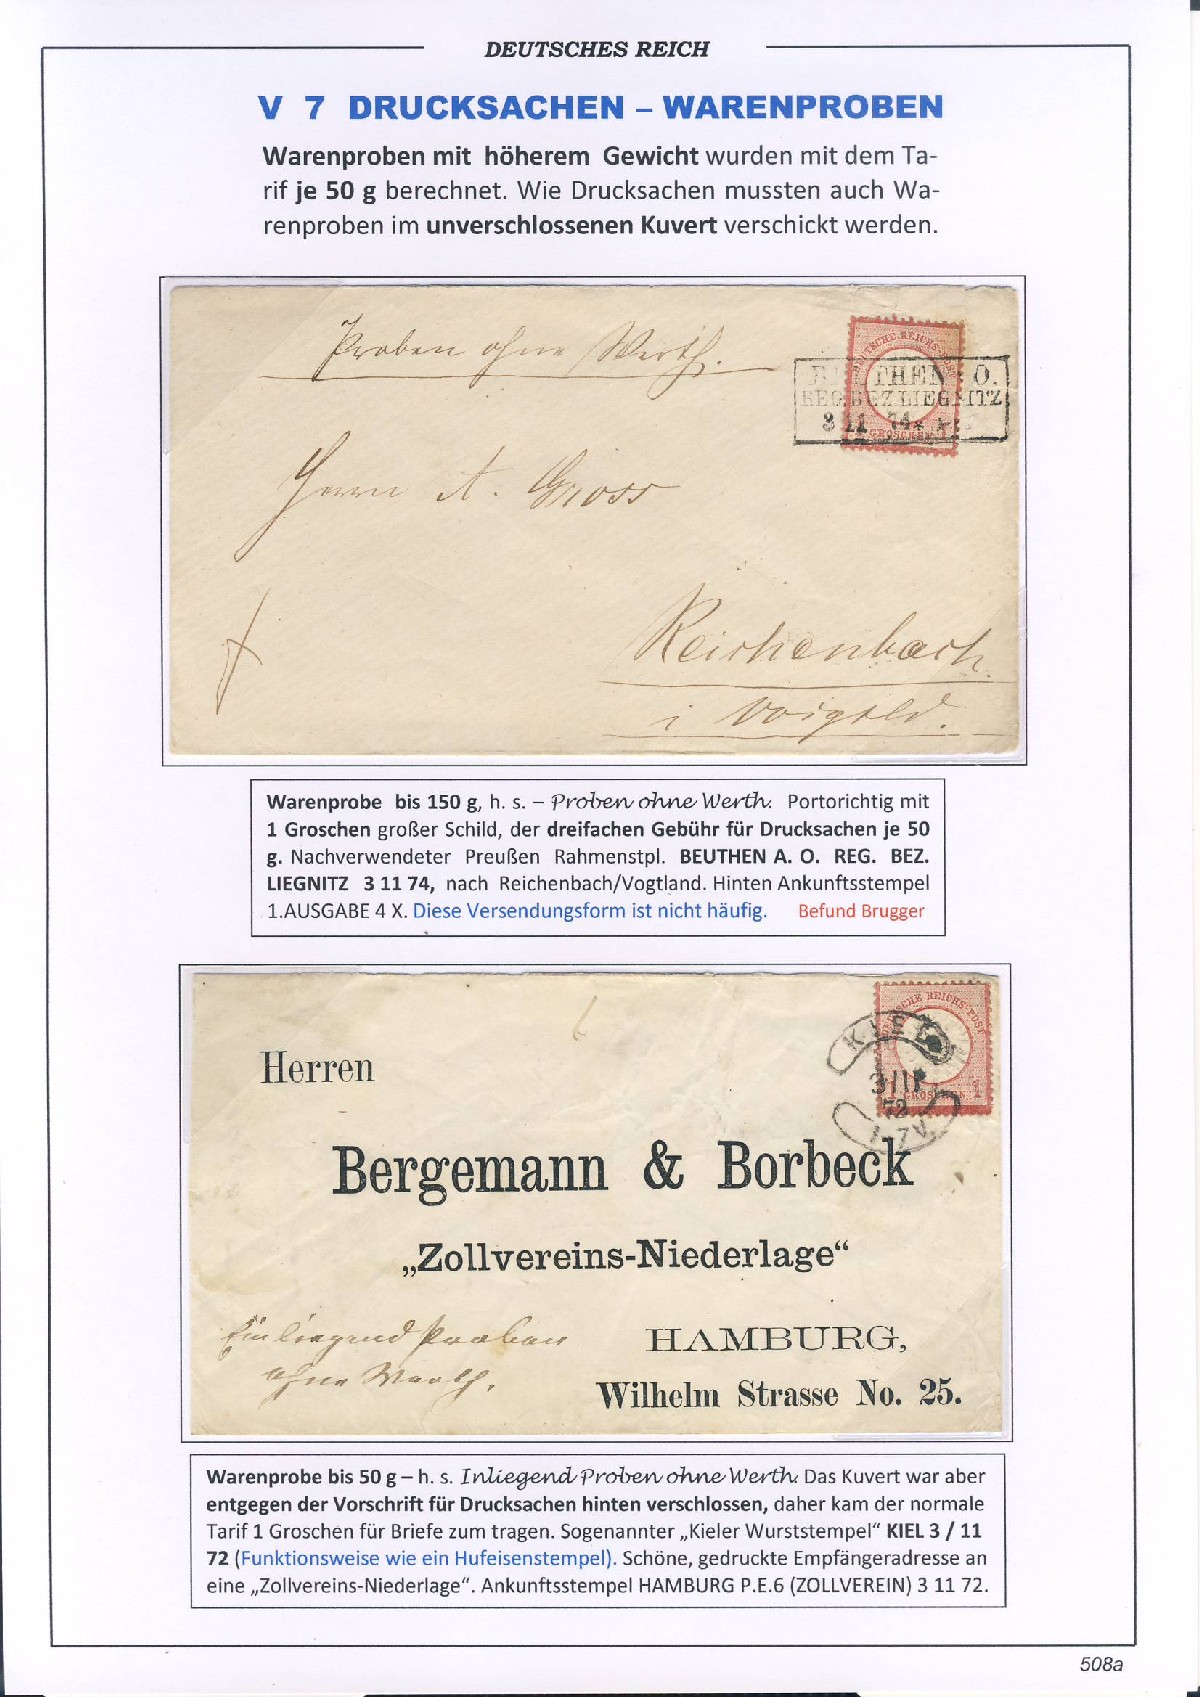 DEUTSCHES REICH
V 7 DRUCKSACHEN – WARENPROBEN
Warenproben mit höherem Gewicht wurden mit dem Ta-
rif je 50 g berechnet. Wie Drucksachen mussten auch Wa-
renproben im unverschlossenen Kuvert verschickt werden.
Proben ohne Werth.
DEUTSCHE REICHS-POST
THEN O.
REG. BEZ LIEGNITZ
3 11 74
GROSCHEN 1
Herrn A. Gross
Reichenbach
i Voigtld.
Warenprobe bis 150 g, h. s. – Proben ohne Werth. Portorichtig mit
1 Groschen großer Schild, der dreifachen Gebühr für Drucksachen je 50
g. Nachverwendeter Preußen Rahmenstpl. BEUTHEN A. O. REG. BEZ.
LIEGNITZ 3 11 74, nach Reichenbach/Vogtland. Hinten Ankunftsstempel
1.AUSGABE 4 X. Diese Versendungsform ist nicht häufig. Befund Brugger
DEUTSCHE REICHS-POST
KIEL
3/11
72
GROSCHEN 1
Herren
Bergemann & Borbeck
„Zollvereins-Niederlage“
Einliegend Proben
ohne Werth.
HAMBURG,
Wilhelm Strasse No. 25.
Warenprobe bis 50 g – h. s. Inliegend Proben ohne Werth. Das Kuvert war aber
entgegen der Vorschrift für Drucksachen hinten verschlossen, daher kam der normale
Tarif 1 Groschen für Briefe zum tragen. Sogenannter „Kieler Wurststempel“ KIEL 3 / 11
72 (Funktionsweise wie ein Hufeisenstempel). Schöne, gedruckte Empfängeradresse an
eine „Zollvereins-Niederlage“. Ankunftsstempel HAMBURG P.E.6 (ZOLLVEREIN) 3 11 72.
508a